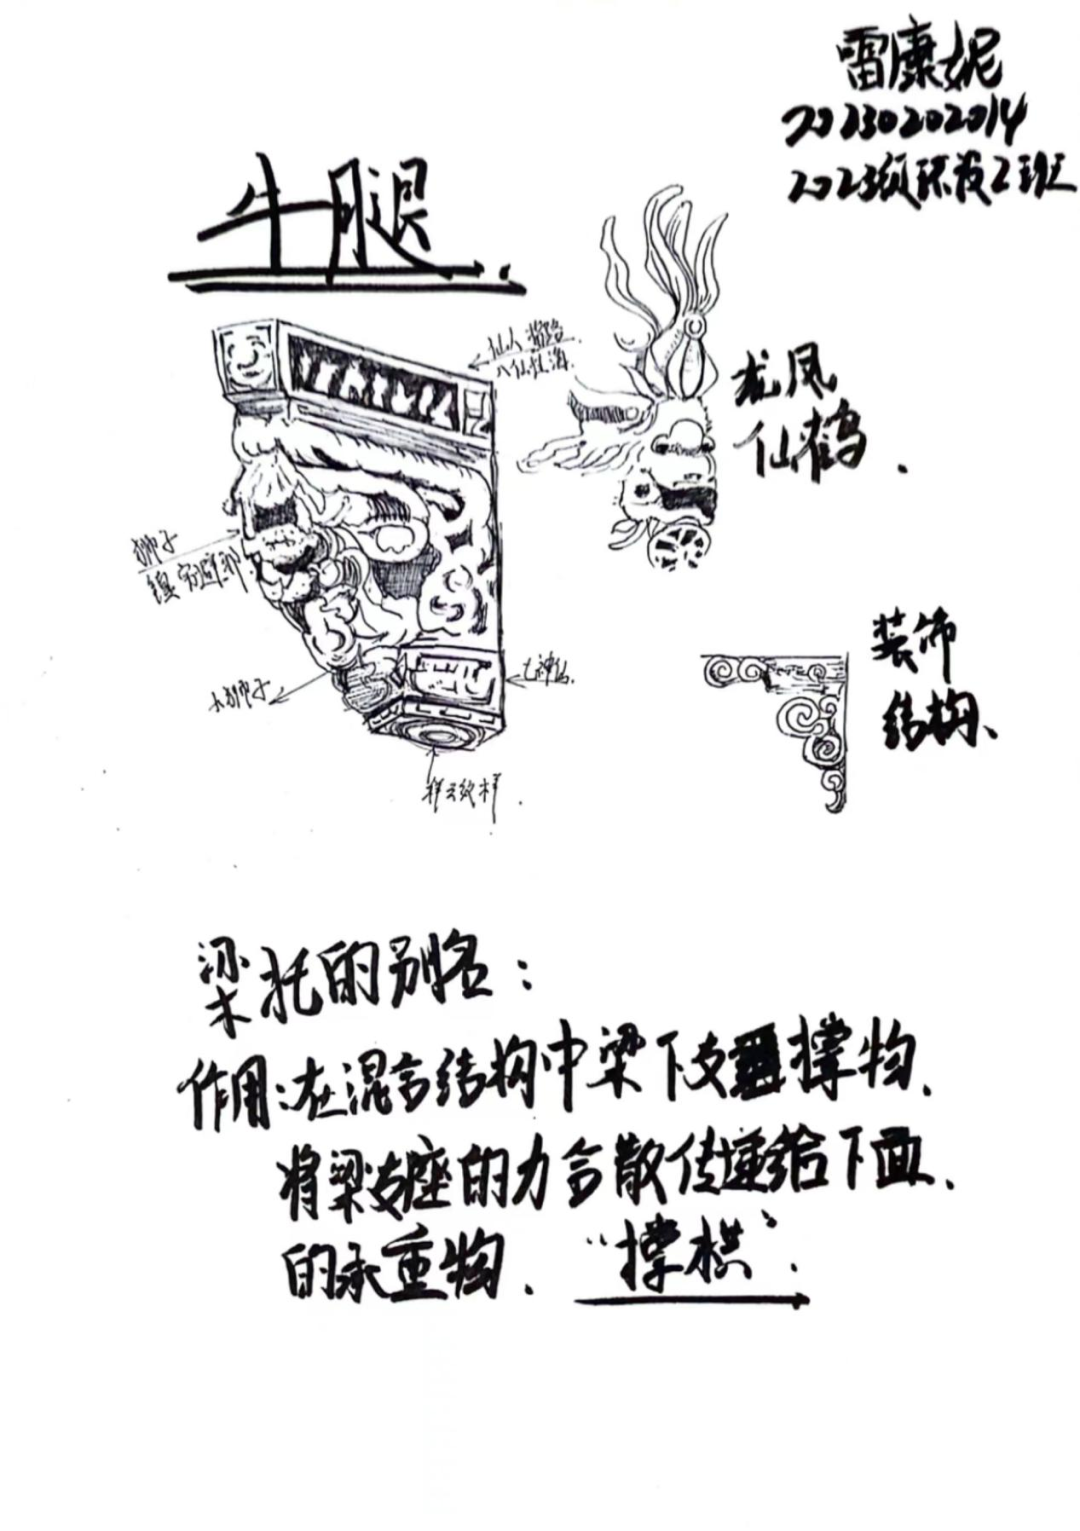 雷康妮
20230202014
2023级环设2班
牛腿
仙人指路
八仙过海
龙凤
仙鹤.
狮子
镇宅避邪
小狮子
七神仙
祥云纹样.
装饰
结构、
梁托的别名：
作用：在混合结构中梁下支撑物、
将梁支座的力合散传递给下面、
的承重物、“撑栱”.